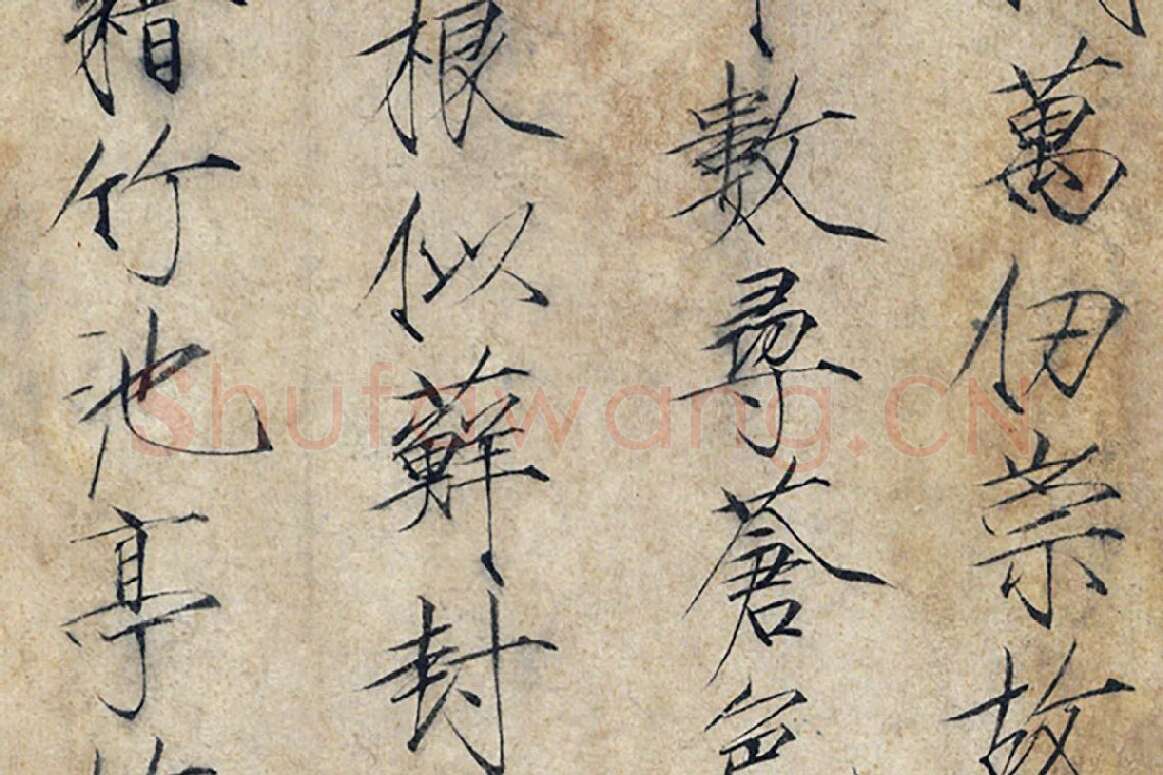 萬仞崇故
數尋蒼色
根似蘚封
稽竹池亭
Shufawang.CN